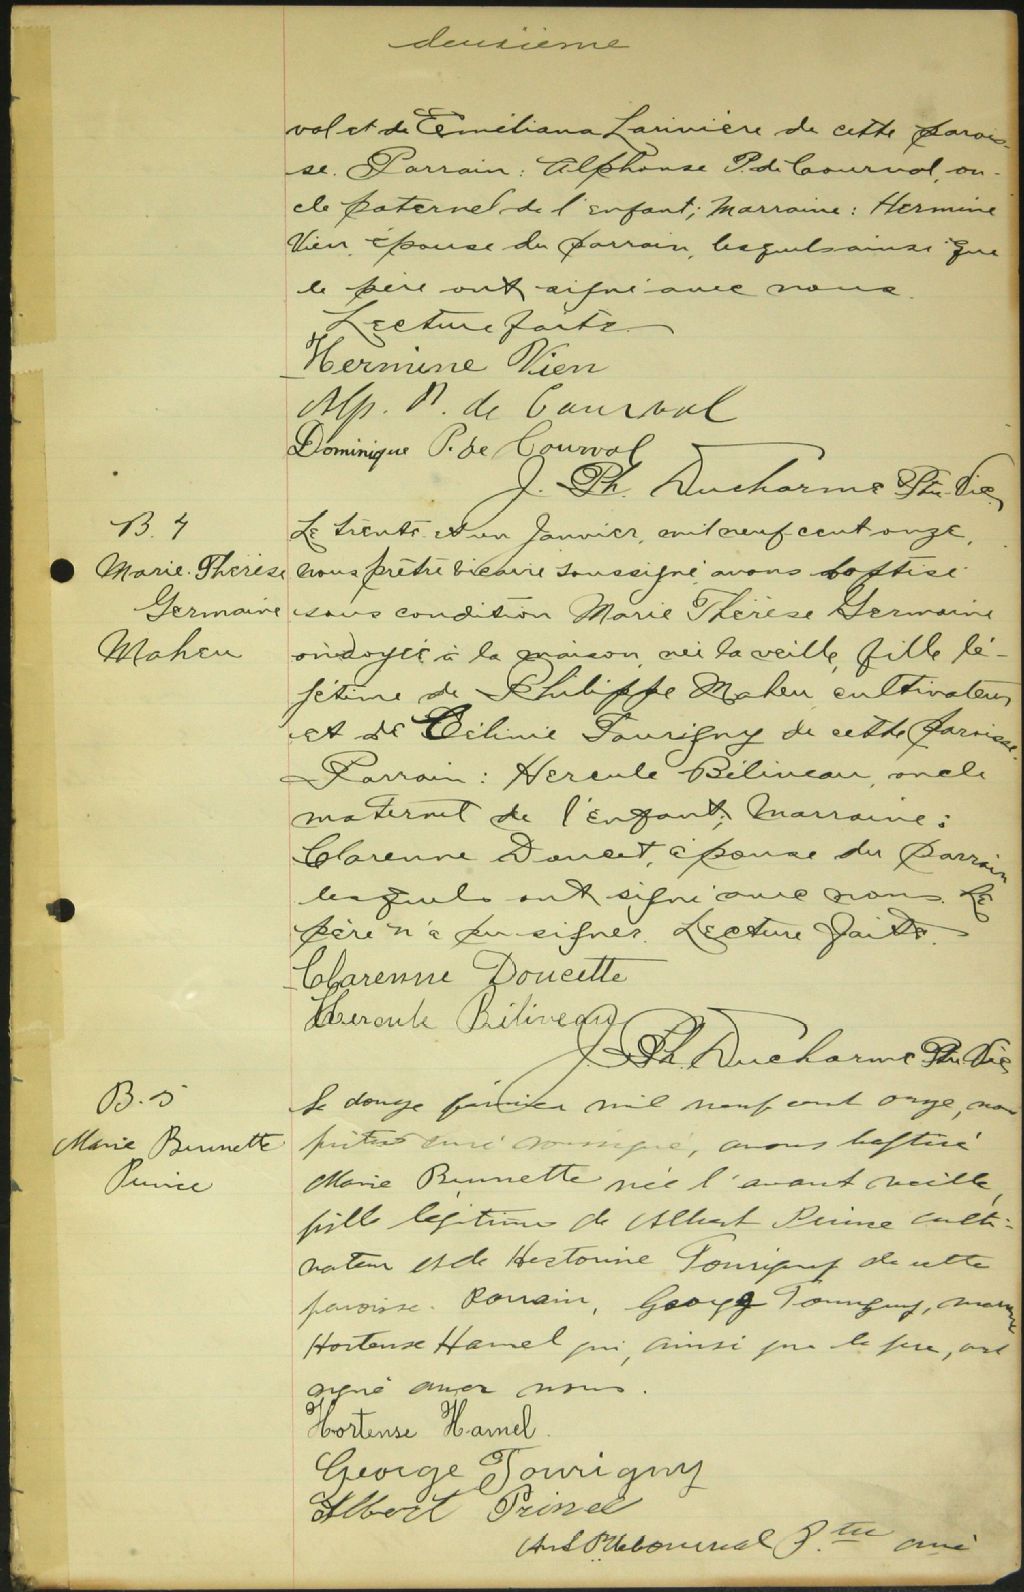 deuxième
val et de Eméliana Larivière de cette parois-
se. Parrain: Alphonse P. de Courval, on-
cle paternel de l'enfant; Marraine: Hermine
Vien, épouse du parrain, lesquels ainsi que
le père ont signé avec nous.
Lecture faite
Hermine Vien
Alp. P. de Courval
Dominique P. de Courval
J. Ph. Ducharme Ptre Vic.
B. 4
Marie-Thérèse
Germaine
Maheu
Le trente et un Janvier, mil neuf cent onze,
nous prêtre vicaire soussigné avons baptisé
sous condition Marie Thérèse Germaine
ondoyée à la maison, née la veille, fille lé-
gitime de Philippe Maheu, cultivateur
et de Céline Tourigny de cette paroisse.
Parrain: Hercule Béliveau, oncle
maternel de l'enfant; Marraine:
Clarenne Doucet, épouse du parrain
lesquels ont signé avec nous. Le
père n'a pu signer. Lecture faite.
Clarenne Doucette
Hercule Béliveau
J. Ph. Ducharme Ptre Vic
B. 5
Marie Brunette
Prince
Le douze février mil neuf cent onze, nous
prêtre curé soussigné, avons baptisé
Marie Brunette née l'avant veille,
fille légitime de Albert Prince culti-
vateur et de Hestorine Tourigny de cette
paroisse. Parrain, George Tourigny, marraine
Hortense Hamel qui, ainsi que le père, ont
signé avec nous.
Hortense Hamel.
George Tourigny
Albert Prince
P. de Courval Ptre curé